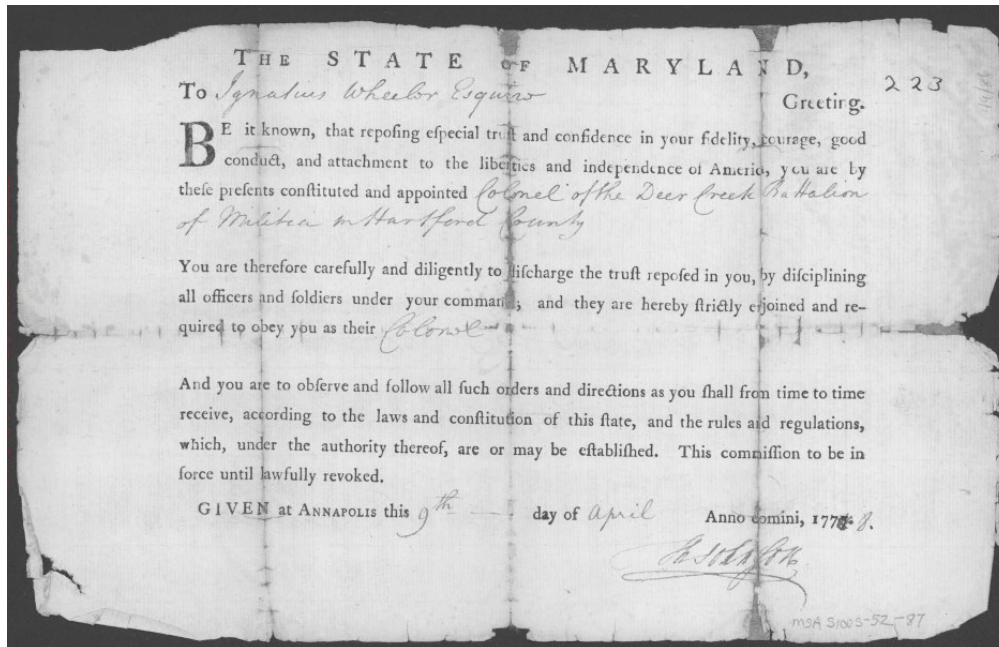 THE STATE OF MARYLAND,
223
To Ignatius Wheeler Esquire
Greeting.
BE it known, that repoſing eſpecial truſt and confidence in your fidelity, courage, good
conduct, and attachment to the liberties and independence of America, you are by
theſe preſents conſtituted and appointed Colonel of the Deer Creek Battalion
of Militia in Hartford County
You are therefore carefully and diligently to diſcharge the truſt repoſed in you, by diſciplining
all officers and ſoldiers under your command, and they are hereby ſtrictly enjoined and re-
quired to obey you as their Colonel
And you are to obſerve and follow all ſuch orders and directions as you ſhall from time to time
receive, according to the laws and conſtitution of this ſtate, and the rules and regulations,
which, under the authority thereof, are or may be eſtabliſhed. This commiſſion to be in
force until lawfully revoked.
GIVEN at ANNAPOLIS this 9th day of April Anno domini, 1778.
Th Johnson
MSA S1005-52-87